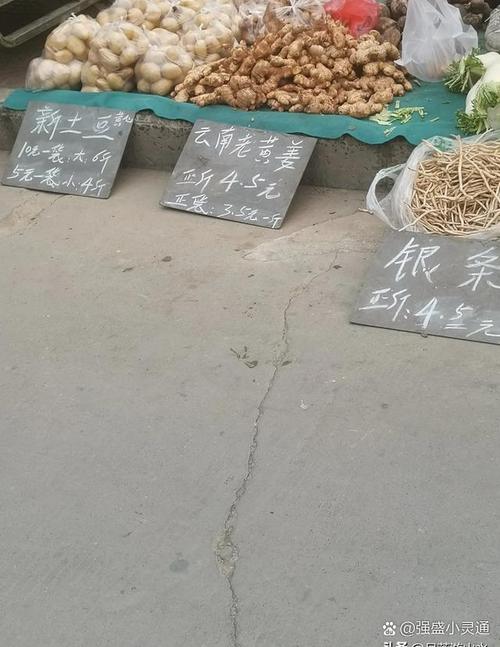 新土豆
10元一袋.大.6斤
5元一袋小.4斤
云南老黄姜
斤4.5元
袋:3.5元一斤
银条
4.5元
@强盛小灵通
头条